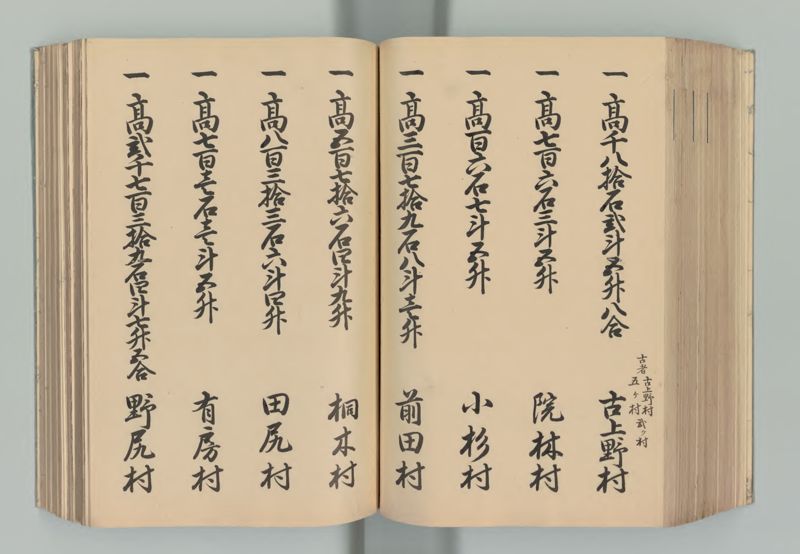 古者 古上野村
五ケ村 弐ケ村
一 高千八拾石弐斗五升八合 古上野村
一 高七百六石三斗五升 院林村
一 高百六石七斗五升 小杉村
一 高三百七拾九石八斗壱升 前田村
一 高五百七拾六石四斗九升 桐木村
一 高八百三拾三石六斗四升 田尻村
一 高七百壱石壱斗五升 有房村
一 高弐千七百三拾九石四斗七升五合 野尻村